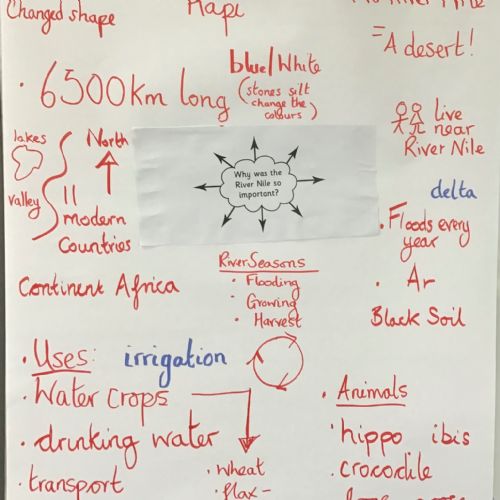 Changed shape
Hapi
= A desert!
• 6500km long
blue/White
(stones silt
change the
colours)
live
near
River Nile
lakes
North
valley
11
modern
Countries
Why was the
River Nile so
important?
delta
• Floods every
year
• Ar
Black Soil
Continent Africa
River Seasons
• Flooding
• Growing
• Harvest
• Uses: irrigation
• Water crops
• drinking water
• transport
• wheat
• flax -
• Animals
hippo ibis
crocodile